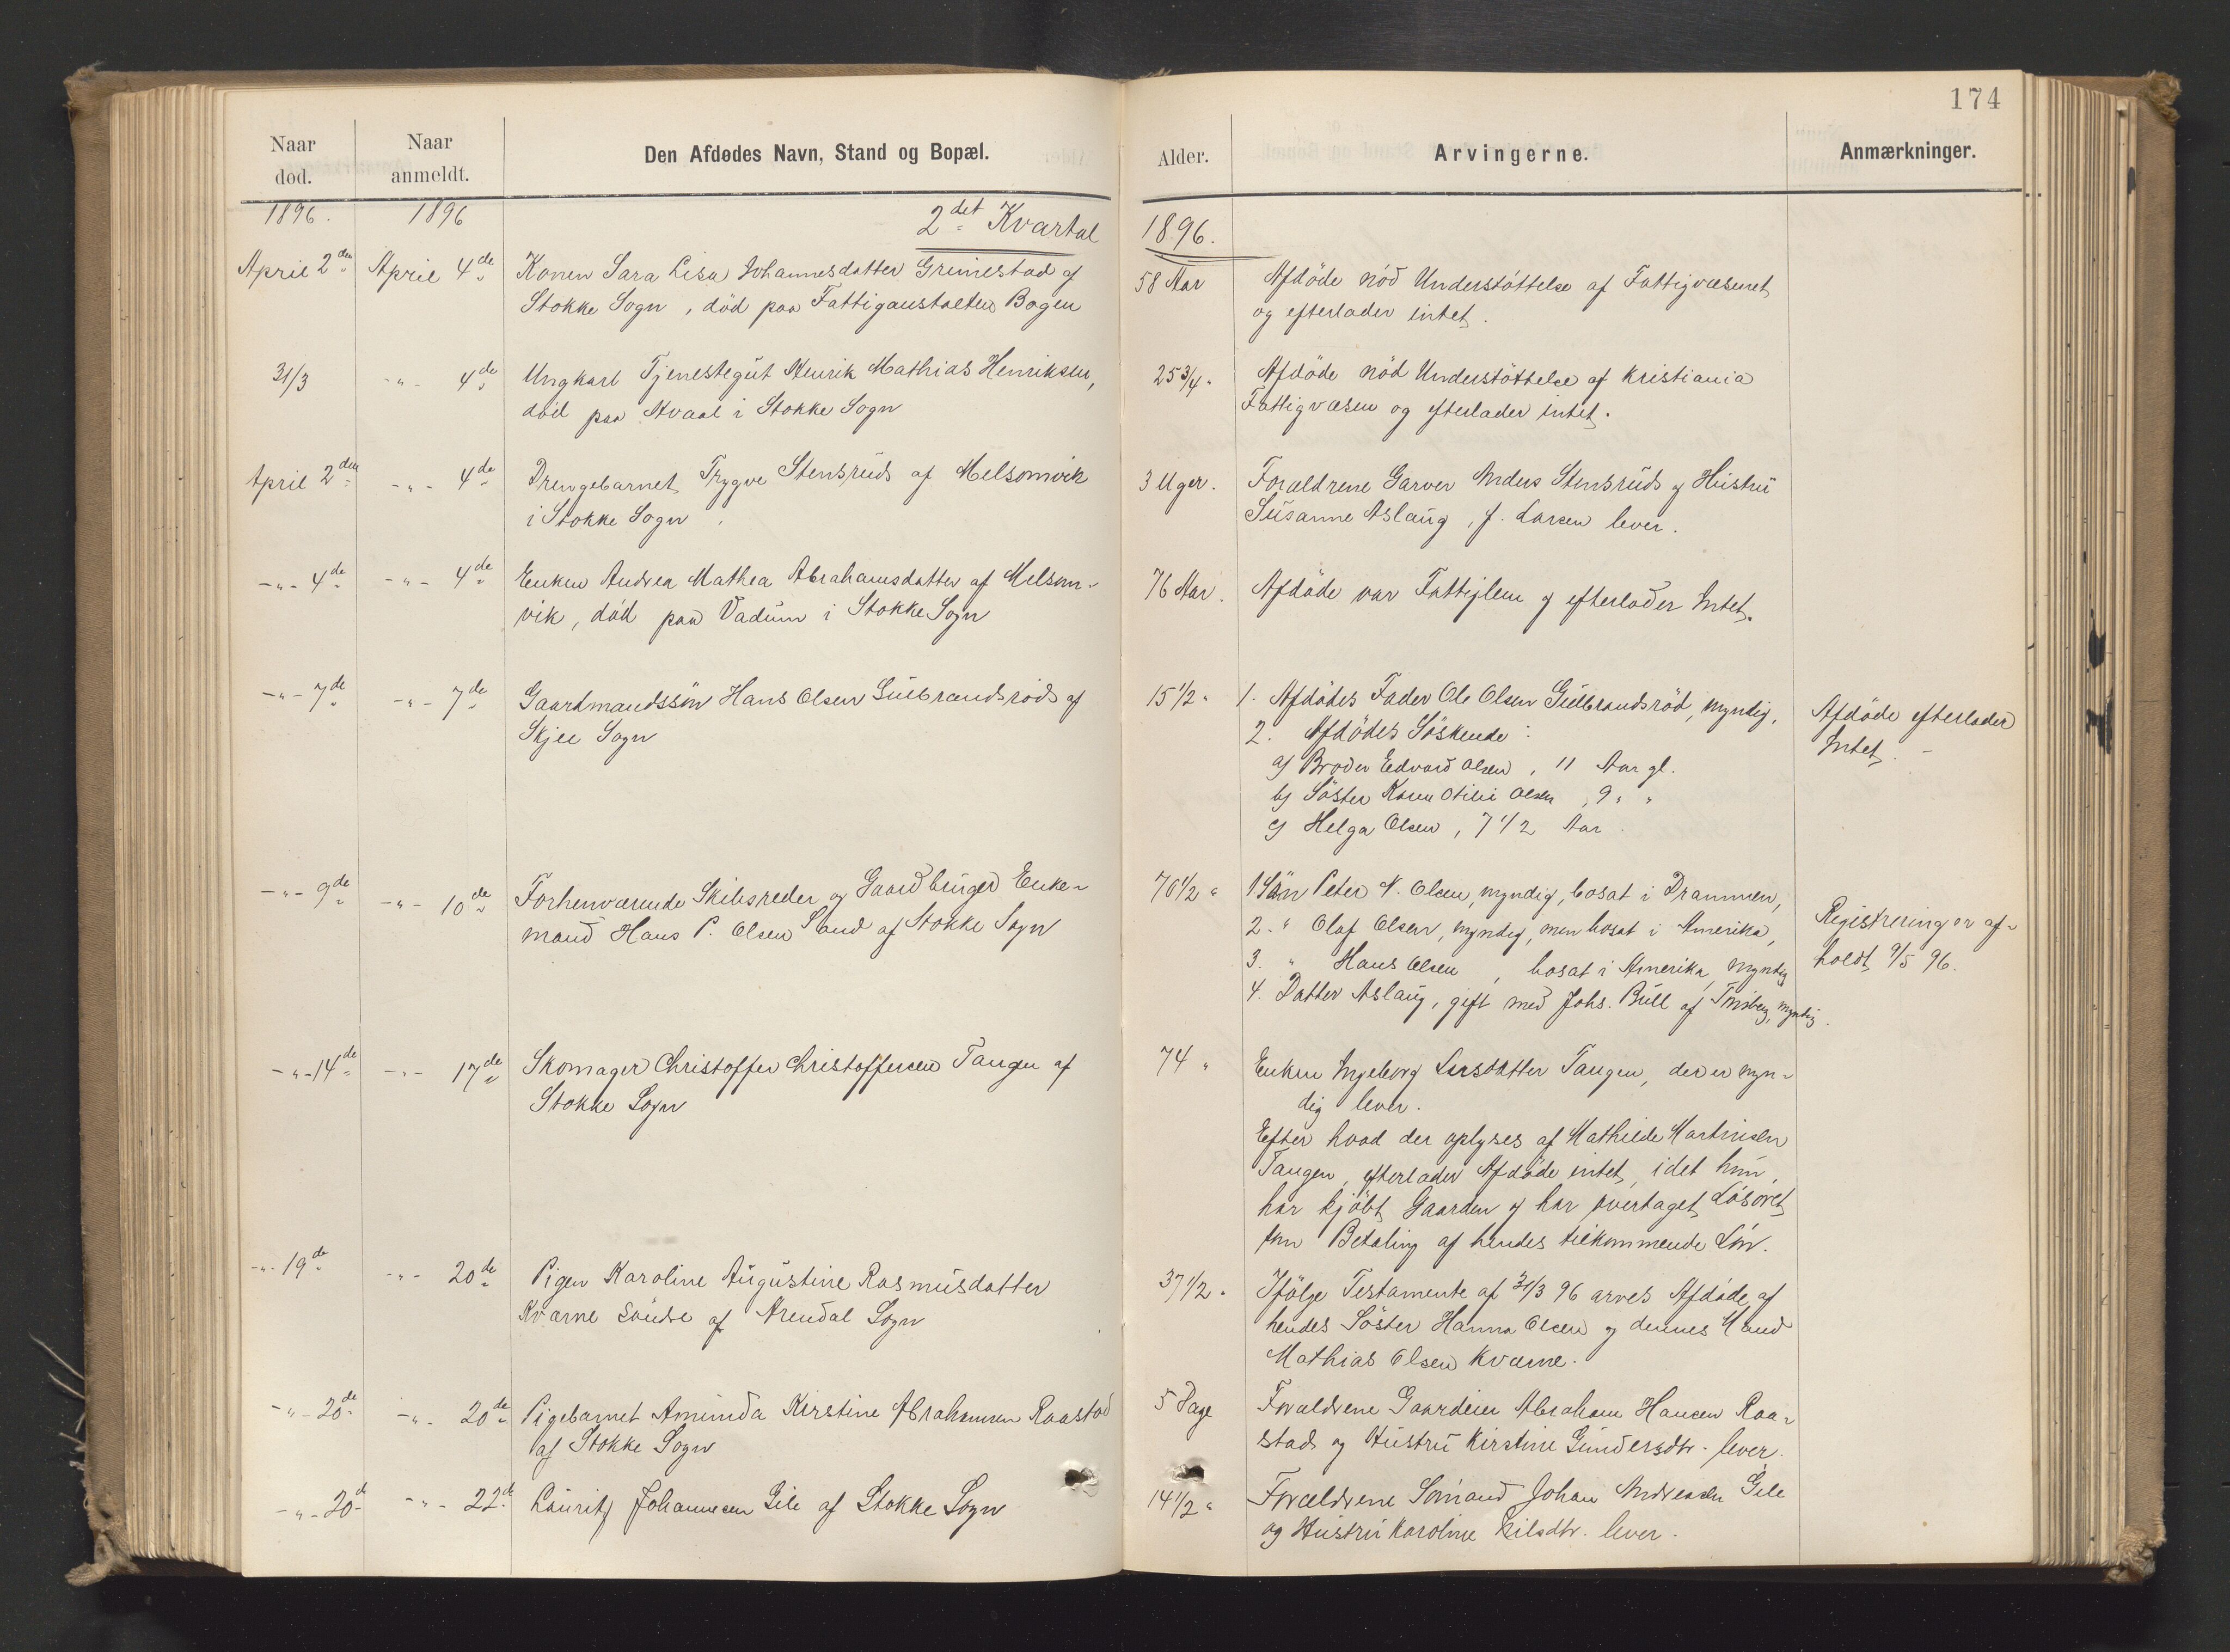 174
Naar død.
Naar anmeldt.
Den Afdødes Navn, Stand og Bopæl.
Alder.
Arvingerne.
Anmærkninger.
1896.
1896
2det Kvartal
1896.
April 2den
April 4de
Konen Sara Lisa Johannesdatter Grimestad af
Stokke Sogn, död paa Fattiganstalten Bogen
58 Aar
Afdöde nöd Understöttelse af Fattigvæsenet
og efterlader intet.
31/3
-"- 4de
Ungkarl Tjenestegut Henrik Mathias Henriksen,
död paa Hvaal i Stokke Sogn
25 3/4 "
Afdöde nöd Understöttelse af Kristiania
Fattigvæsen og efterlader intet.
April 2den
-"- 4de
Drengebarnet Trygve Stensrud af Melsomvik
i Stokke Sogn.
3 Uger.
Forældrene Garver Anders Stensrud og Hustru
Susanne Aslaug, f. Larsen lever.
-"- 4de
-"- 4de
Enken Andrea Mathea Abrahamsdatter af Melsom-
vik, död paa Vadum i Stokke Sogn
76 Aar.
Afdöde var Fattiglem og efterlader Intet.
-"- 7de
-"- 7de
Gaardmandssön Hans Olsen Gulbrandsröd af
Skjee Sogn
15 1/2 "
1. Afdödes Fader Ole Olsen Gulbrandsröd, myndig,
2. Afdödes Söskende:
a) Broder Edvard Olsen, 11 Aar gl.
b) Söster Karen Otilie Olsen, 9 " "
c) Helga Olsen, 7 1/2 Aar.
Afdöde efterlader
Intet. -
-"- 9de
-"- 10de
Forhenværende Skibsreder og Gaardbruger Enke-
mand Hans P. Olsen Sand af Stokke Sogn
76 1/2 "
1 Sön Peter N. Olsen, myndig, bosat i Drammen,
2. " Olaf Olsen, myndig, men bosat i Amerika,
3. " Hans Olsen, bosat i Amerika, myndig
4. Datter Aslaug, gift med Johs. Bull af Tönsberg, myndig.
Registrering er af-
holdt 9/5 96.
-"- 14de
-"- 17de
Skomager Christoffer Christoffersen Tangen af
Stokke Sogn
74 "
Enken Ingeborg Larsdatter Tangen, der er myn-
dig lever.
Efter hvad der oplyses af Mathilde Martinsen
Tangen, efterlader Afdöde intet, idet hun
har kjöbt Gaarden og har overtaget Lösöret
som Betaling af hendes tilkommende Lön.
-"- 19de
-"- 20de
Pigen Karoline Augustine Rasmusdatter
Kvarne söndre af Arendal Sogn
37 1/2 "
Ifölge Testamente af 31/3 96 arves Afdöde af
hendes Söster Hanna Olsen og dennes Mand
Mathias Olsen Kvarne.
-"- 20de
-"- 20de
Pigebarnet Aminda Kirstine Abrahamsen Raastad
af Stokke Sogn
5 Dage
Forældrene Gaardeier Abraham Hansen Raa-
stad og Hustru Kirstine Gundersdtr. lever.
-"- 20de
-"- 22de
Lauritz Johannesen Gile af Stokke Sogn
14 1/2 "
Forældrene Sömand Johan Andresen Gile
og Hustru Karoline Nilsdtr. lever.